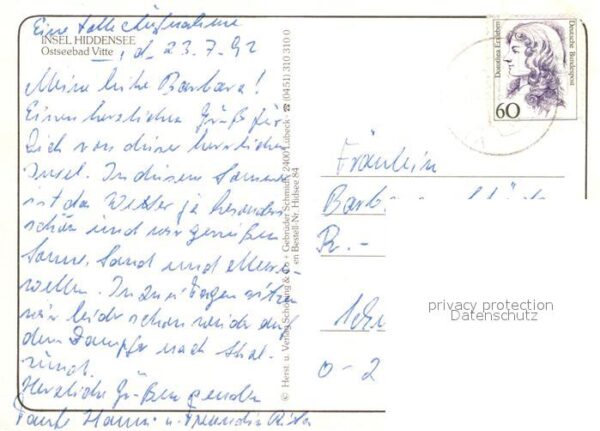 Eine tolle Aufnahme
INSEL HIDDENSEE
Ostseebad Vitte, d. 23.7.92
Meine liebe Barbara!
Einen herzlichen Gruß für
Dich von dieser herrlichen
Insel. In diesem Sommer
ist das Wetter ja besonders
schön und wir genießen
Sonne, Sand und Meeres-
wellen. In zwei Tagen sitzen
wir leider schon wieder auf
dem Dampfer nach Stral-
sund.
Herzliche Grüße senden
Tante Hanni u. Freundin Rita
© Herst. u. Verlag Schöning & Co + Gebrüder Schmidt, 2400 Lübeck · ☎ (0451) 310 310 0
en Bestell-Nr. Hidsee 84
Dorothea Erxleben
Deutsche Bundespost
60
Fräulein
R.-
O-2
privacy protection
Datenschutz